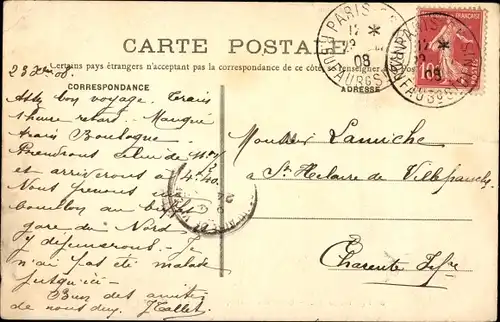 CARTE POSTALE
Certains pays étrangers n'acceptant pas la correspondance de ce côté, se renseigner
CORRESPONDANCE
ADRESSE
23 Xbre 08.
Assez bon voyage. Train
1 heure retard. Manqué
train Boulogne.
Prendrons celui de
et arriverons à 4.40.
Nous prenons un
bouillon au buffet
gare du Nord
Y déjeunerons. J
n'ai pas été malade
jusqu'ici
Bien des amitiés
de nous deux. J Tallet
Monsieur Lamiche
à St Helaire de Villefranche
Charente Infre
PARIS
12 *
23
08
FAUBG ST
PARIS
12 *
08
FAUBG ST
FRANÇAISE
10